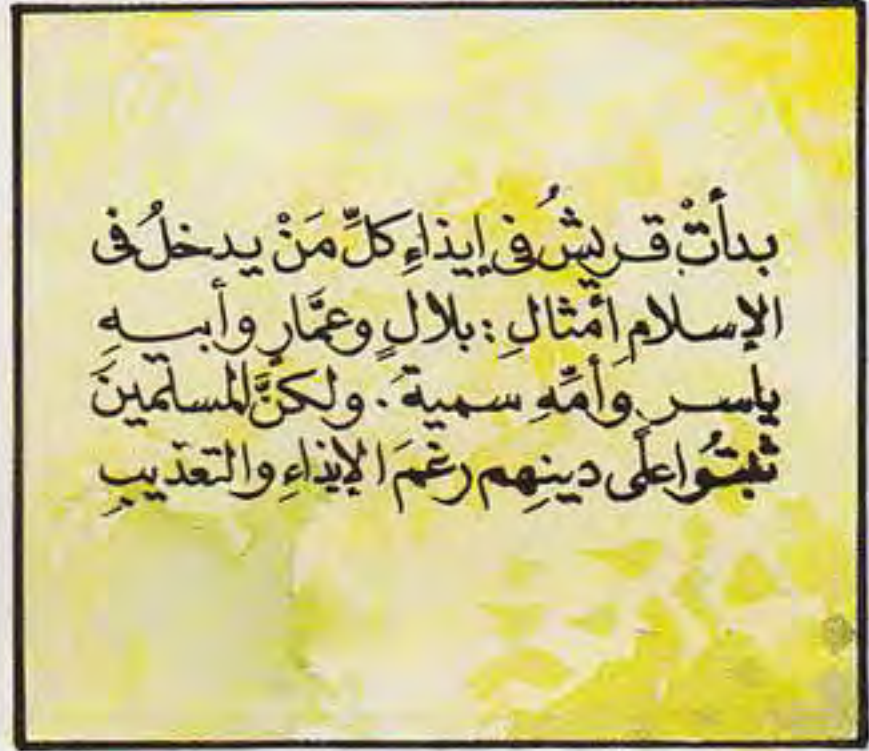 بدأتْ قريشُ فى إيذاءِ كلِّ مَنْ يدخلُ فى
الإسلامِ أمثالِ : بلالٍ وعمَّارٍ وأبيهِ
ياسر وأمِّهِ سميةَ . ولكنَّ المسلمينَ
ثبتُوا على دينِهم رغمَ الإيذاءِ والتعذيبِ